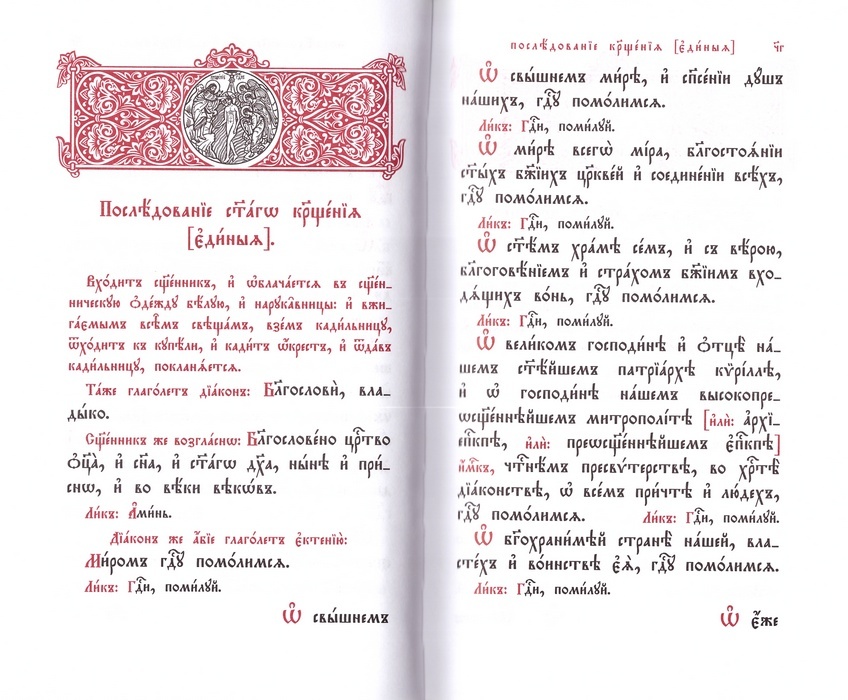 Послѣ́дованїе ст҃а́гѡ кр҃ще́нїѧ
[є҆ди́ныѧ].
Вхо́дитъ сщ҃е́нникъ, и҆ ѡ҆блача́етсѧ въ сщ҃е́н-
ническую ѻ҆де́жду бѣ́лую, и҆ нарука̑вницы: и҆ вжи-
га́ємымъ всѣ̑мъ свѣща́мъ, взе́мъ кади́льницу,
ѿхо́дитъ къ купе́ли, и҆ кади́тъ ѡ҆́крестъ, и҆ ѿда́въ
кади́льницу, покланѧ́етсѧ.
Та́же глаго́летъ дїа́конъ: Бл҃гословѝ, вла-
ды́ко.
Сщ҃е́нникъ же возгла́снѡ: Бл҃гослове́но цр҃тво
ѻ҆ц҃а̀, и҆ сн҃а, и҆ ст҃а́гѡ дх҃а, ны́нѣ и҆ при́-
снѡ, и҆ во вѣ́ки вѣкѡ́въ.
Ли́къ: А҆ми́нь.
Дїа́конъ же а҆́бїе глаго́летъ є҆ктенїю̀:
Ми́ромъ гд҇ꙋ помо́лимсѧ.
Ли́къ: Гд҇и, поми́лꙋй.
Ѡ҆ свы́шнемъ
послѣ́дованїе кр҃ще́нїѧ [є҆ди́ныѧ] ч҃г
Ѡ҆ свы́шнемъ ми́рѣ, и҆ сп҃се́нїи дꙋ́шъ
на́шихъ, гд҇ꙋ помо́лимсѧ.
Ли́къ: Гд҇и, поми́лꙋй.
Ѡ҆ ми́рѣ всегѡ̀ мі́ра, бл҃гостоѧ́нїи
ст҃ы́хъ бж҃їихъ цр҃кве́й и҆ соедине́нїи всѣ́хъ,
гд҇ꙋ помо́лимсѧ.
Ли́къ: Гд҇и, поми́лꙋй.
Ѡ҆ ст҃ѣ́мъ хра́мѣ се́мъ, и҆ съ вѣ́рою,
бл҃гоговѣ́нїемъ и҆ стра́хомъ бж҃їимъ вхо-
дѧ́щихъ во́нь, гд҇ꙋ помо́лимсѧ.
Ли́къ: Гд҇и, поми́лꙋй.
Ѡ҆ вели́комъ господи́нѣ и҆ ѻ҆тцѣ̀ на́-
шемъ ст҃ѣ́йшемъ патрїа́рхѣ кѷрі́ллѣ,
и҆ ѡ҆ господи́нѣ на́шемъ высокопре-
ѡсщ҃е́ннѣйшемъ митрополі́тѣ [и҆лѝ: а҆рхї-
еп҇кпѣ, и҆лѝ: преѡсщ҃е́ннѣйшемъ є҆п҇кпѣ]
и҆́м҃къ, чтⷭ҇нѣ́мъ пресвѵ́терствѣ, во хр҇тѣ̀
дїа́конствѣ, ѡ҆ все́мъ при́чтѣ и҆ лю́дехъ,
гд҇ꙋ помо́лимсѧ. Ли́къ: Гд҇и, поми́лꙋй.
Ѡ҆ бг҃охрани́мѣй странѣ̀ на́шей, вла-
сте́хъ и҆ во́инствѣ є҆ѧ̀, гд҇ꙋ помо́лимсѧ.
Ли́къ: Гд҇и, поми́лꙋй.
Ѡ҆ є҆́же